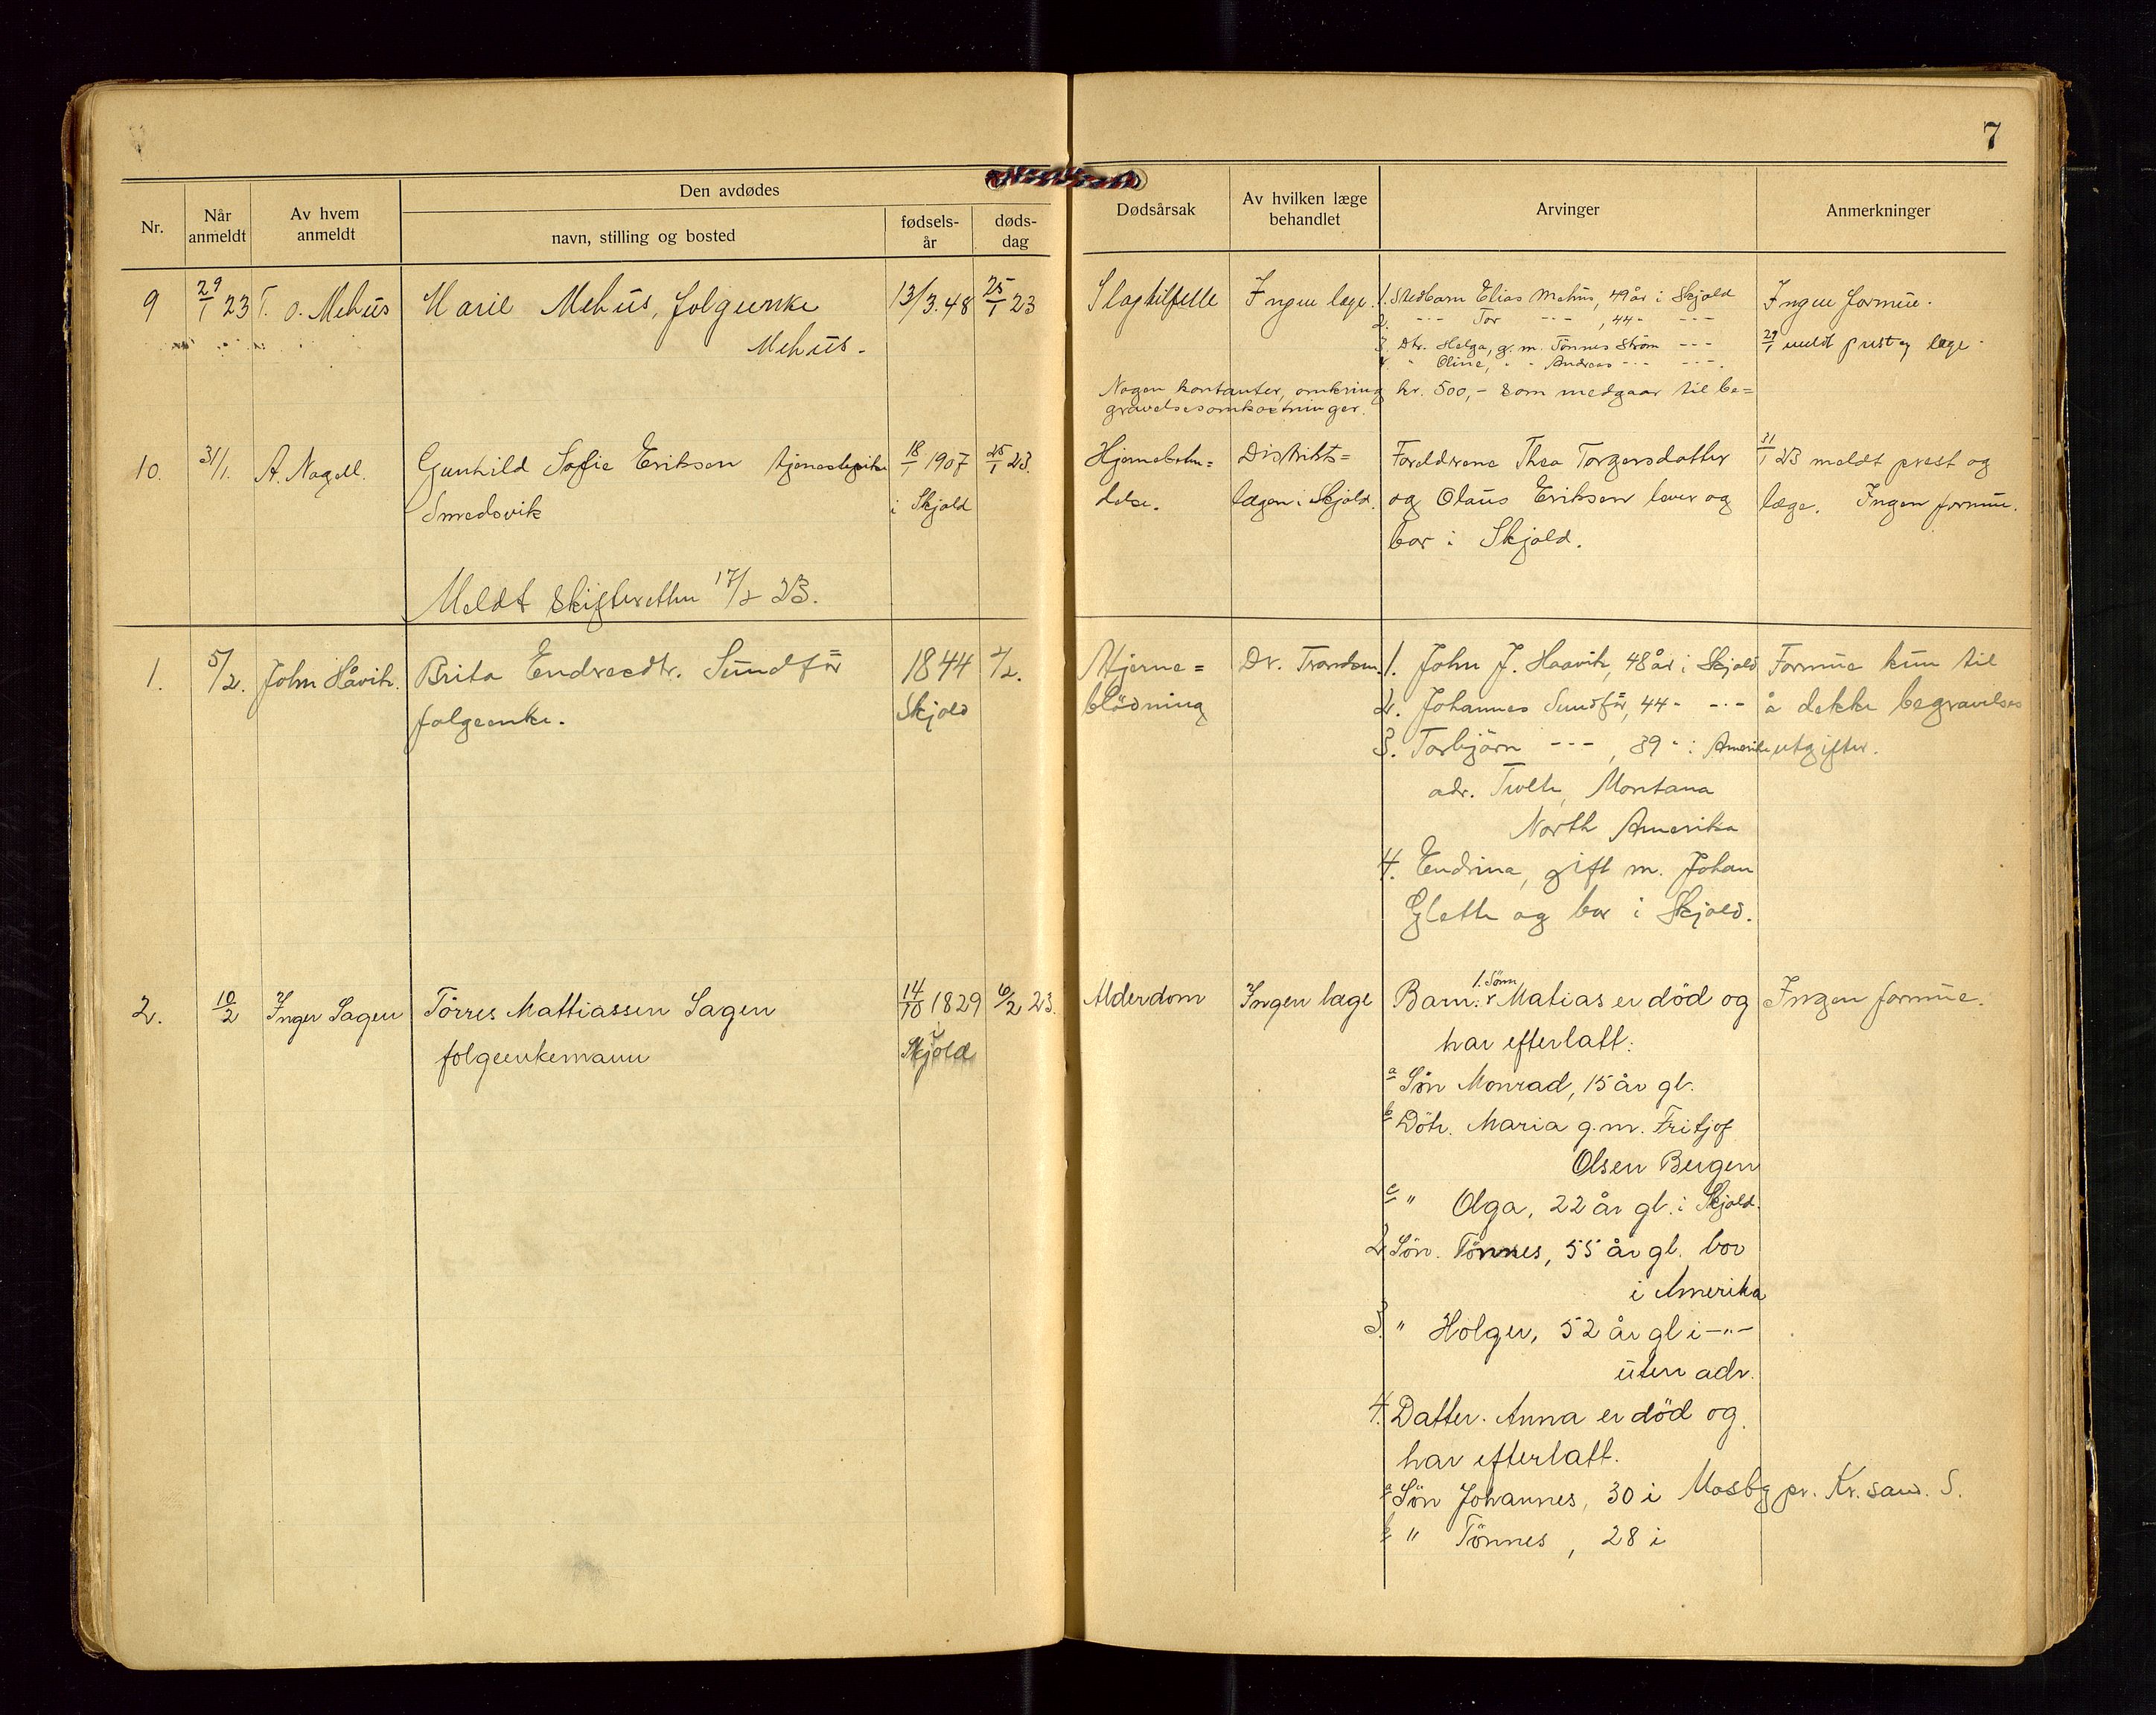 7
Den avdødes
Nr.
Når anmeldt
Av hvem anmeldt
navn, stilling og bosted
fødsels-år
døds-dag
Dødsårsak
Av hvilken læge behandlet
Arvinger
Anmerkninger
9 29/1 23 T. O. Mehus Marie Mehus, folgeenke 13/3.48 25/1 23
Mehus.
Slagtilfelle Ingen læge. 1. Stedbarn Elias Mehus, 49 år i Skjold Ingen formue.
2. -"- Tor -"- , 44 " -"-
3. Dtr. Helga, g. m. Tönnes Ström -"- 29/1 meldt prest og læge.
4. " Oline, " " Andreas -"- -"-.
Nogen kontanter, omkring kr. 500,- som medgaar til be=
gravelsesomkostninger.
10. 31/1. A. Nagell. Gunhild Sofie Eriksen tjenestepike 18/1 1907 25/1 23.
Smedsvik i Skjold
Hjernebetæn= Distrikts= Foreldrene Thea Torgersdatter 31/1 23 meldt prest og
delse. lægen i Skjold. og Olaus Eriksen lever og læge. Ingen formue.
bor i Skjold.
Meldt skifteretten 17/2 23.
1. 5/2. John Håvik. Brita Endresdtr. Sundför 1844 2/2.
folgeenke. Skjold
Hjerne= Dr. Trondsen. 1. John J. Haavik, 48 år i Skjold Formue kun til
blödning 2. Johannes Sundför, 44 " -"- å dekke begravelses
3. Torbjörn -"- , 39 " i Amerika utgifter.
adr. Montana
North Amerika
4. Endrine, gift m. Johan
Glette og bor i Skjold.
2. 10/2 Inger Sagen Törres Mattiassen Sagen 14/10 1829 6/2 23.
folgeenkemann i Skjold
Alderdom Ingen læge Barn: 1. Sönn Matias er död og Ingen formue.
har efterlatt:
a Sön Monrad, 15 år gl.
b Dötr. Maria g.m. Fritjof
Olsen Bergen
c " Olga, 22 år gl. i Skjold.
2. Sön. Tönnes, 55 år gl. bor
i Amerika
3. " Holger, 52 år gl i -"-
uten adr.
4. Datter. Anna er död og
har efterlatt.
a Sön Johannes, 30 i Mosby pr. Kr.sand. S.
b " Tönnes, 28 i